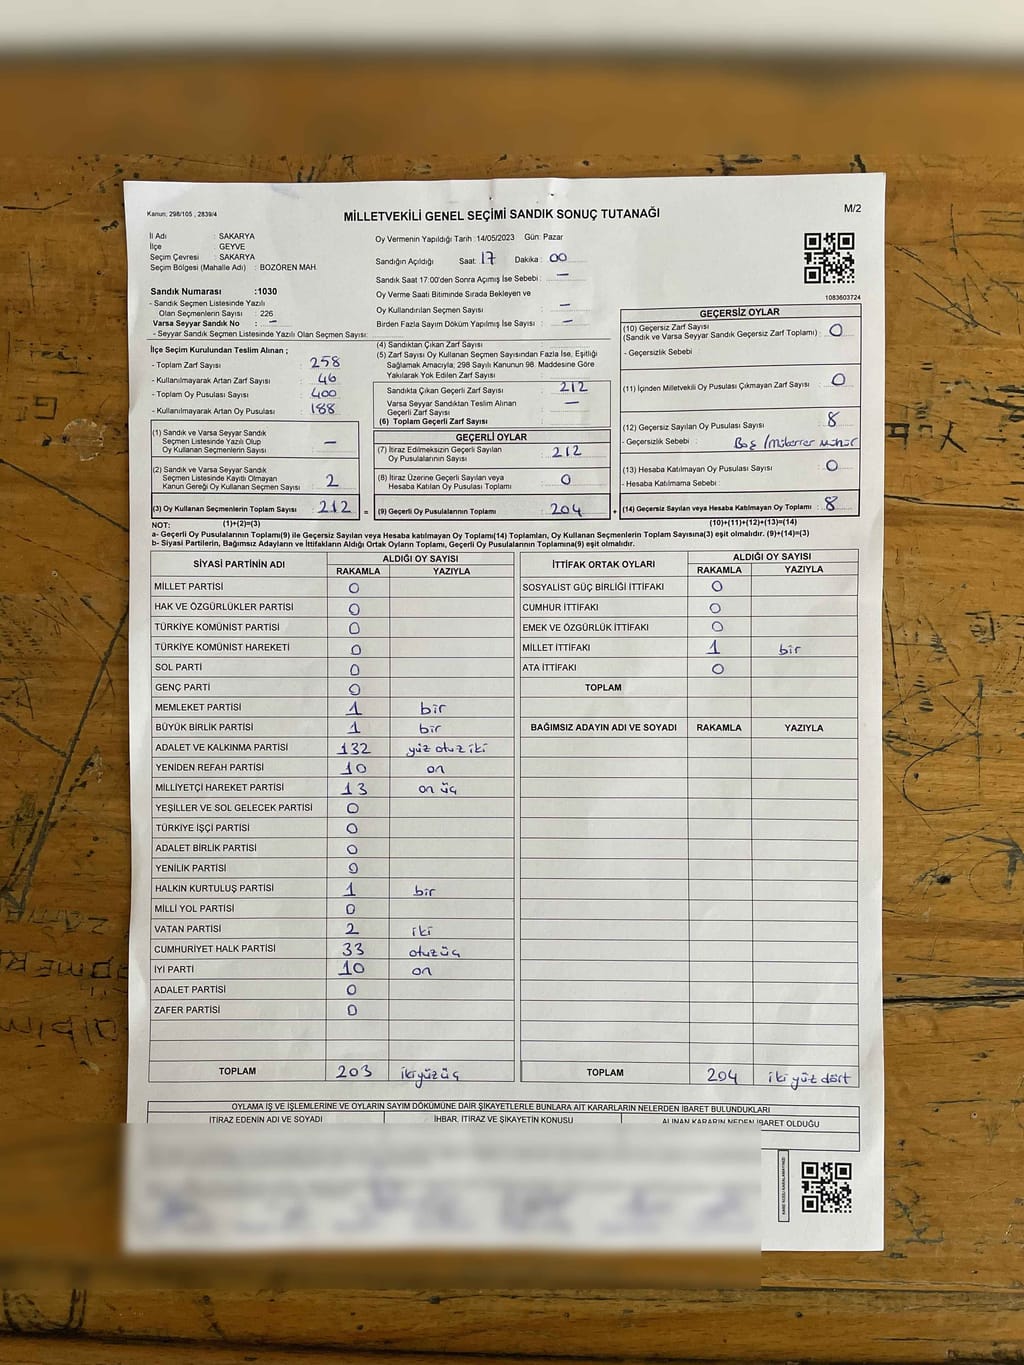 Kanun; 298/105 , 2839/4
MİLLETVEKİLİ GENEL SEÇİMİ SANDIK SONUÇ TUTANAĞI
M/2
İl Adı : SAKARYA
İlçe : GEYVE
Seçim Çevresi : SAKARYA
Seçim Bölgesi (Mahalle Adı) : BOZÖREN MAH.
Oy Vermenin Yapıldığı Tarih : 14/05/2023 Gün: Pazar
Sandığın Açıldığı Saat: 17 Dakika : 00
Sandık Saat 17:00'den Sonra Açımış İse Sebebi : —
Oy Verme Saati Bitiminde Sırada Bekleyen ve
Oy Kullandırılan Seçmen Sayısı : —
Birden Fazla Sayım Döküm Yapılmış İse Sayısı : —
1083603724
Sandık Numarası :1030
- Sandık Seçmen Listesinde Yazılı
Olan Seçmenlerin Sayısı : 226
Varsa Seyyar Sandık No : —
- Seyyar Sandık Seçmen Listesinde Yazılı Olan Seçmen Sayısı:
İlçe Seçim Kurulundan Teslim Alınan ;
- Toplam Zarf Sayısı : 258
- Kullanılmayarak Artan Zarf Sayısı : 46
- Toplam Oy Pusulası Sayısı : 400
- Kullanılmayarak Artan Oy Pusulası : 188
(1) Sandık ve Varsa Seyyar Sandık
Seçmen Listesinde Yazılı Olup
Oy Kullanan Seçmenlerin Sayısı : —
(2) Sandık ve Varsa Seyyar Sandık
Seçmen Listesinde Kayıtlı Olmayan
Kanun Gereği Oy Kullanan Seçmen Sayısı : 2
(3) Oy Kullanan Seçmenlerin Toplam Sayısı : 212 =
(4) Sandıktan Çıkan Zarf Sayısı :
(5) Zarf Sayısı Oy Kullanan Seçmen Sayısından Fazla İse, Eşitliği
Sağlamak Amacıyla; 298 Sayılı Kanunun 98. Maddesine Göre
Yakılarak Yok Edilen Zarf Sayısı :
Sandıkta Çıkan Geçerli Zarf Sayısı : 212
Varsa Seyyar Sandıktan Teslim Alınan
Geçerli Zarf Sayısı : —
(6) Toplam Geçerli Zarf Sayısı :
GEÇERLİ OYLAR
(7) İtiraz Edilmeksizin Geçerli Sayılan
Oy Pusulalarının Sayısı : 212
(8) İtiraz Üzerine Geçerli Sayılan veya
Hesaba Katılan Oy Pusulası Toplamı : 0
(9) Geçerli Oy Pusulalarının Toplamı : 204 +
GEÇERSİZ OYLAR
(10) Geçersiz Zarf Sayısı
(Sandık ve Varsa Seyyar Sandık Geçersiz Zarf Toplamı) : 0
- Geçersizlik Sebebi
(11) İçinden Milletvekili Oy Pusulası Çıkmayan Zarf Sayısı : 0
(12) Geçersiz Sayılan Oy Pusulası Sayısı : 8
- Geçersizlik Sebebi : Boş / Mükerrer Mühür
(13) Hesaba Katılmayan Oy Pusulası Sayısı : 0
- Hesaba Katılmama Sebebi :
(14) Geçersiz Sayılan veya Hesaba Katılmayan Oy Toplamı : 8
NOT: (1)+(2)=(3) (10)+(11)+(12)+(13)=(14)
a- Geçerli Oy Pusulalarının Toplamı(9) ile Geçersiz Sayılan veya Hesaba katılmayan Oy Toplamı(14) Toplamları, Oy Kullanan Seçmenlerin Toplam Sayısına(3) eşit olmalıdır. (9)+(14)=(3)
b- Siyasi Partilerin, Bağımsız Adayların ve İttifakların Aldığı Ortak Oyların Toplamı, Geçerli Oy Pusulalarının Toplamına(9) eşit olmalıdır.
SİYASİ PARTİNİN ADI ALDIĞI OY SAYISI
RAKAMLA YAZIYLA
MİLLET PARTİSİ 0
HAK VE ÖZGÜRLÜKLER PARTİSİ 0
TÜRKİYE KOMÜNİST PARTİSİ 0
TÜRKİYE KOMÜNİST HAREKETİ 0
SOL PARTİ 0
GENÇ PARTİ 0
MEMLEKET PARTİSİ 1 bir
BÜYÜK BİRLİK PARTİSİ 1 bir
ADALET VE KALKINMA PARTİSİ 132 yüz otuz iki
YENİDEN REFAH PARTİSİ 10 on
MİLLİYETÇİ HAREKET PARTİSİ 13 on üç
YEŞİLLER VE SOL GELECEK PARTİSİ 0
TÜRKİYE İŞÇİ PARTİSİ 0
ADALET BİRLİK PARTİSİ 0
YENİLİK PARTİSİ 0
HALKIN KURTULUŞ PARTİSİ 1 bir
MİLLİ YOL PARTİSİ 0
VATAN PARTİSİ 2 iki
CUMHURİYET HALK PARTİSİ 33 otuz üç
İYİ PARTİ 10 on
ADALET PARTİSİ 0
ZAFER PARTİSİ 0
TOPLAM 203 ikiyüz üç
İTTİFAK ORTAK OYLARI ALDIĞI OY SAYISI
RAKAMLA YAZIYLA
SOSYALİST GÜÇ BİRLİĞİ İTTİFAKI 0
CUMHUR İTTİFAKI 0
EMEK VE ÖZGÜRLÜK İTTİFAKI 0
MİLLET İTTİFAKI 1 bir
ATA İTTİFAKI 0
TOPLAM
BAĞIMSIZ ADAYIN ADI VE SOYADI RAKAMLA YAZIYLA
TOPLAM 204 iki yüz dört
OYLAMA İŞ VE İŞLEMLERİNE VE OYLARIN SAYIM DÖKÜMÜNE DAİR ŞİKAYETLERLE BUNLARA AİT KARARLARIN NELERDEN İBARET BULUNDUKLARI
İTİRAZ EDENİN ADI VE SOYADI İHBAR, İTİRAZ VE ŞİKAYETİN KONUSU ALINAN KARARIN NEDEN İBARET OLDUĞU